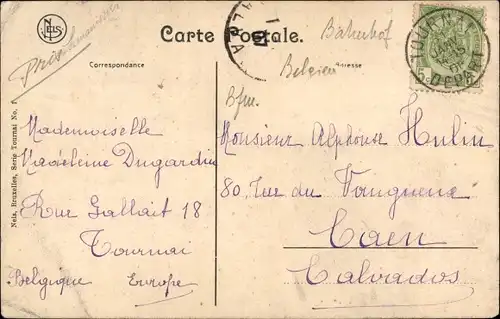 NELS
Carte Postale.
Correspondance
Adresse
Bahnhof
Belgien
Bfm.
TOURNAI
DEPART
Nels, Bruxelles, Serie Tournai No.
Mademoiselle
Madeleine Dugardin
Rue Gallait 18
Tournai
Belgique Europe
Monsieur Alphonse Hulin
80 Rue du Vaugueux
Caen
Calvados